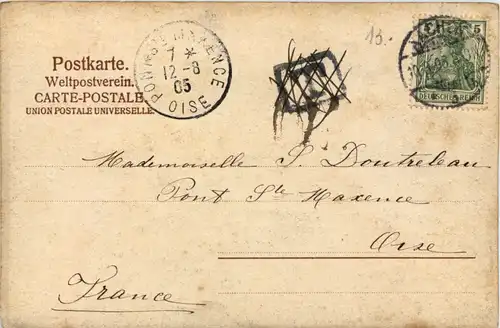 Postkarte.
Weltpostverein.
CARTE-POSTALE
UNION POSTALE UNIVERSELLE.
PONT-STE-MAXENCE
7 *
12-8
05
OISE
13.
5
DEUTSCHES REICH
Mademoiselle S. Doutreleau
Pont Ste Maxence
Oise
France